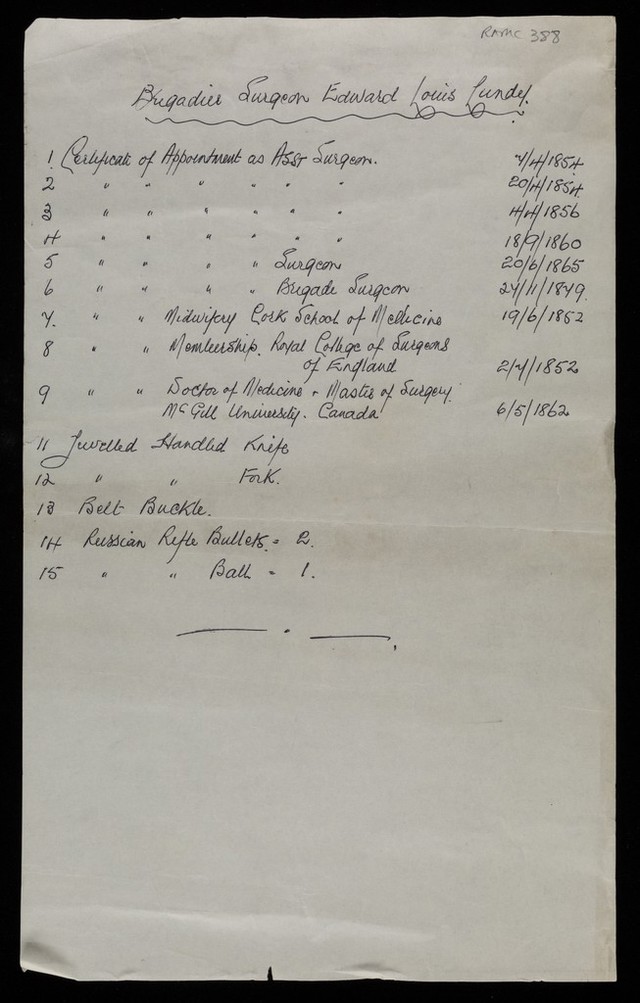 RAMC 388
Brigadier Surgeon Edward Louis Lundy.
1 Certificate of Appointment as Asst Surgeon. 7/4/1854
2 " " " " " " 20/4/1854.
3 " " " " " " 4/4/1856
4 " " " " " " 18/9/1860
5 " " " " Surgeon 20/6/1865
6 " " " " Brigade Surgeon 27/11/1879.
7. " " Midwifery Cork School of Medicine 19/6/1852
8 " " Membership. Royal College of Surgeons
of England 2/7/1852
9 " " Doctor of Medicine + Master of Surgery.
McGill University. Canada 6/5/1862
11 Jewelled Handled Knife
12 " " Fork.
13 Belt Buckle.
14 Russian Rifle Bullets = 2.
15 " " Ball = 1.